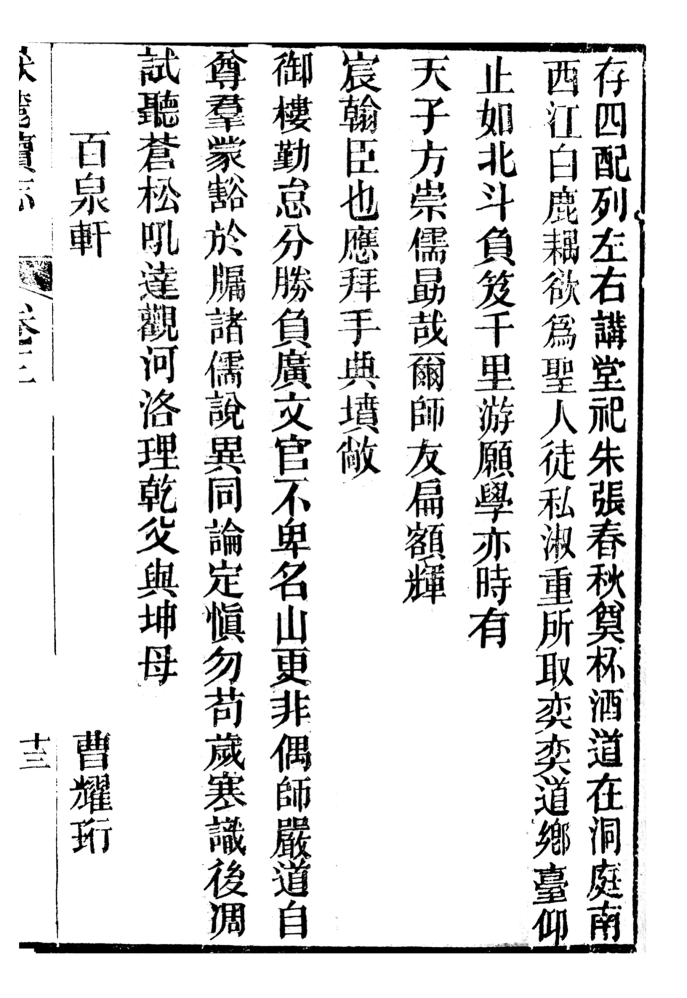 存四配列左右講堂祀朱張春秋奠杯酒道在洞庭南
西江白鹿耦欲爲聖人徒私淑重所取奕奕道鄉臺仰
止如北斗負笈千里游願學亦時有
天子方崇儒勗哉爾師友扁額輝
宸翰臣也應拜手典墳敞
御樓勤怠分勝負廣文官不卑名山更非偶師嚴道自
尊羣蒙豁於牖諸儒說異同論定愼勿苟歲寒識後凋
試聽蒼松吼達觀河洛理乾父與坤母
百泉軒
曹耀珩
卷三
十三